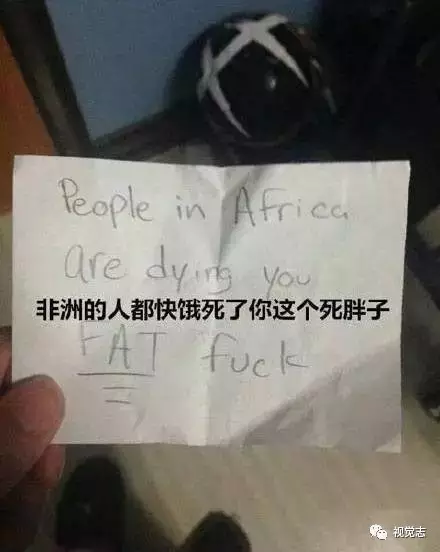 People in Africa
are dying you
非洲的人都快饿死了你这个死胖子
FAT fuck
视觉志